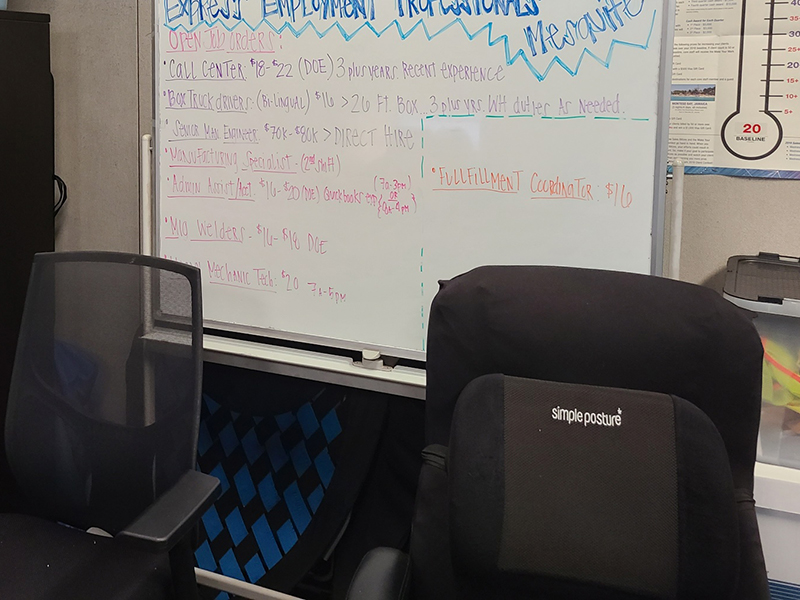 EXPRESS EMPLOYMENT PROFESSIONALS
Mesquite
Open Job orders:
• CALL CENTER $18-$22 (DOE) 3 plus years Recent experience
• Box Truck drivers (Bi-Lingual) $16 > 26 Ft. Box 3 plus yrs. WH duties As Needed.
• Senior Mec. Engineer $70K-$80K > DIRECT HIRE
• Manufacturing Specialist - (2nd shift)
• Admin Assist/Acct $16-$20 (DOE) Quickbooks exp (7a-3pm)
OR
• FULLFILLMENT COORDINATOR: $16
• MIG Welders - $16-$18 DOE
MECHANIC Tech: $20 7A-5pm
simple posture
40
35+
30+
25+
20+
15+
10+
5+
20
BASELINE